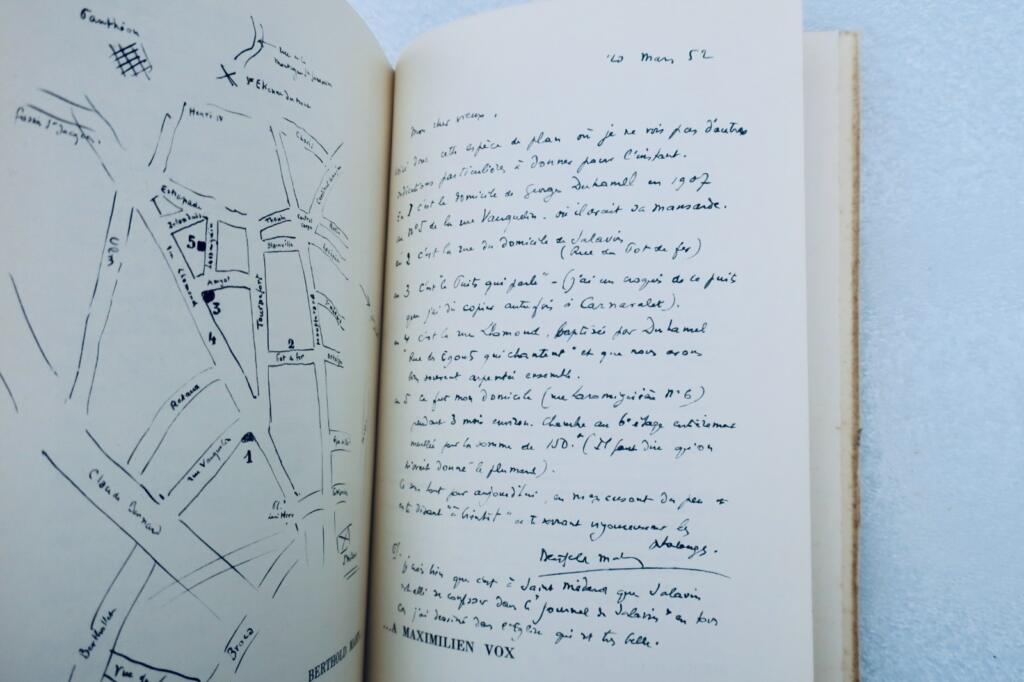 Panthéon
rue de la
Montagne Ste Geneviève
Henri IV
Fossés St Jacques
Estrapade
Ulm
5
Lhomond
Amyot
3
4
Tournefort
Thouin
Blainville
Mouffetard
2
Pot de fer
Rataud
rue Vauquelin
1
Claude Bernard
Berthollet
Broca
BERTHOLD MA
20 Mars 52
Mon cher vieux,
voici donc cette espèce de plan où je ne vois pas d'autres
indications particulières à donner pour l'instant.
En 1 c'est le domicile de Georges Duhamel en 1907
au N° 5 de la rue Vauquelin. où il avait sa mansarde.
en 2 c'est la rue du domicile de Salavin
(Rue du Pot de fer)
en 3 c'est le "Puits qui parle" - (j'ai un croquis de ce puits
que j'ai dû copier autrefois à Carnavalet).
en 4 c'est la rue Lhomond, baptisée par Duhamel
"Rue des Egouts qui chantent" et que nous avons
si souvent arpentée ensemble.
en 5 ce fut mon domicile (rue Laromiguière N° 6)
pendant 3 mois environ. Chambre au 6e étage entièrement
meublée pour la somme de 150. (Il faut dire qu'on
m'avait donné le plumard).
Ce sera tout pour aujourd'hui, en m'excusant du peu et
en te disant "à bientôt" en te serrant vigoureusement les
phalanges.
Berthold Mahn
P.S. je sais bien que c'est à Saint Médard que Salavin
se confesser dans le "Journal de Salavin" en tous
cas j'ai dessiné dans l'église qui est très belle.
...A MAXIMILIEN VOX